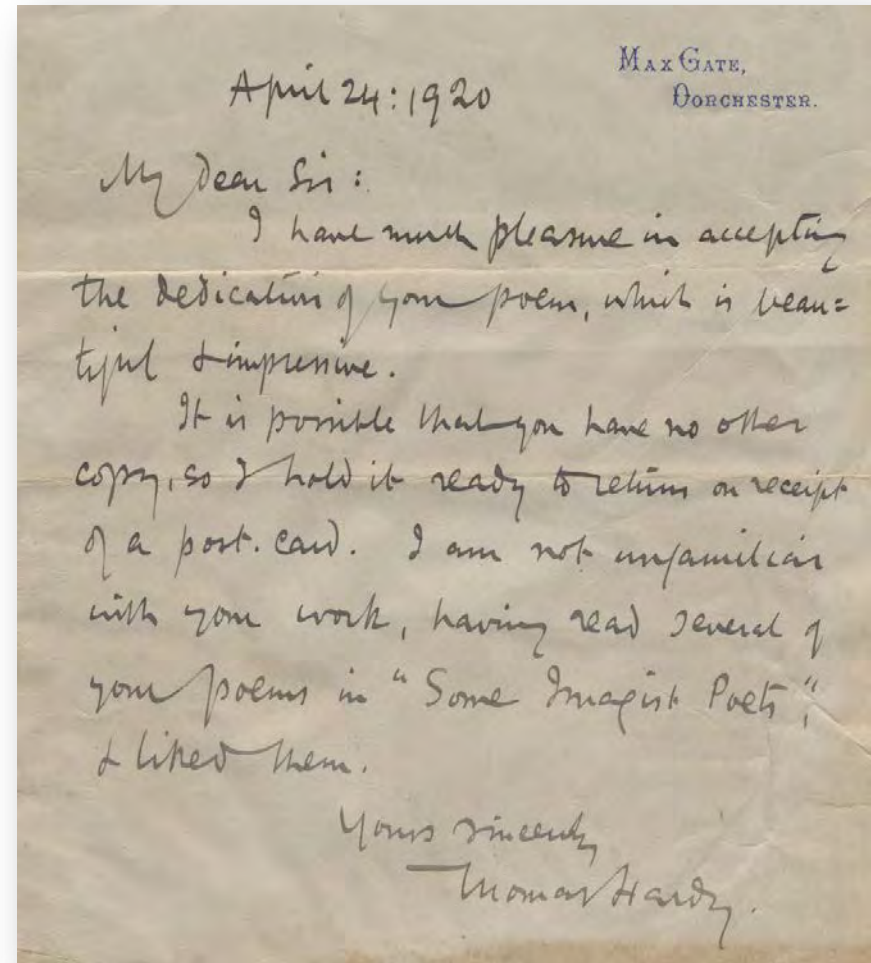 MAX GATE,
DORCHESTER.
April 24: 1920
My dear Sir:
I have much pleasure in accepting
the dedication of your poem, which is beau=
tiful & impressive.
It is possible that you have no other
copy, so I hold it ready to return on receipt
of a post. card. I am not unfamiliar
with your work, having read several of
your poems in "Some Imagist Poets",
& liked them.
Yours sincerely
Thomas Hardy.